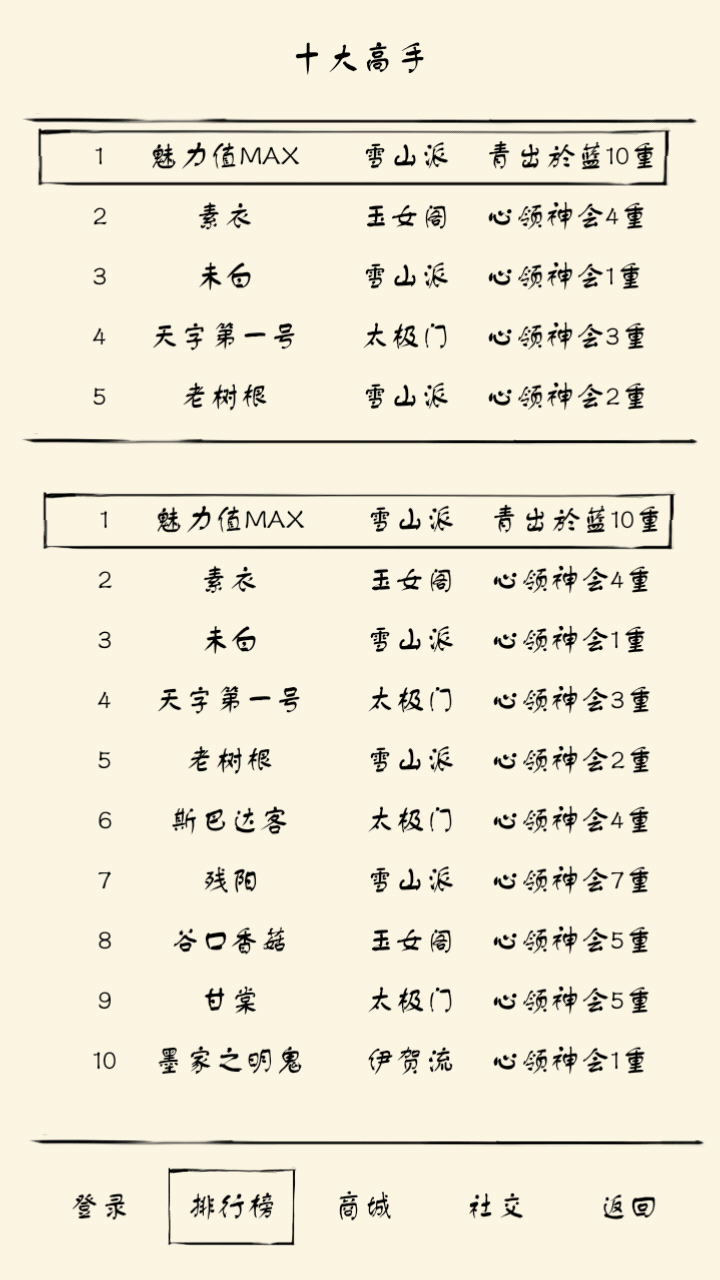 十大高手
1 魅力值MAX 雪山派 青出於蓝10重
2 素衣 玉女阁 心领神会4重
3 未白 雪山派 心领神会1重
4 天字第一号 太极门 心领神会3重
5 老树根 雪山派 心领神会2重
1 魅力值MAX 雪山派 青出於蓝10重
2 素衣 玉女阁 心领神会4重
3 未白 雪山派 心领神会1重
4 天字第一号 太极门 心领神会3重
5 老树根 雪山派 心领神会2重
6 斯巴达客 太极门 心领神会4重
7 残阳 雪山派 心领神会7重
8 谷口香菇 玉女阁 心领神会5重
9 甘棠 太极门 心领神会5重
10 墨家之明鬼 伊贺流 心领神会1重
登录 排行榜 商城 社交 返回